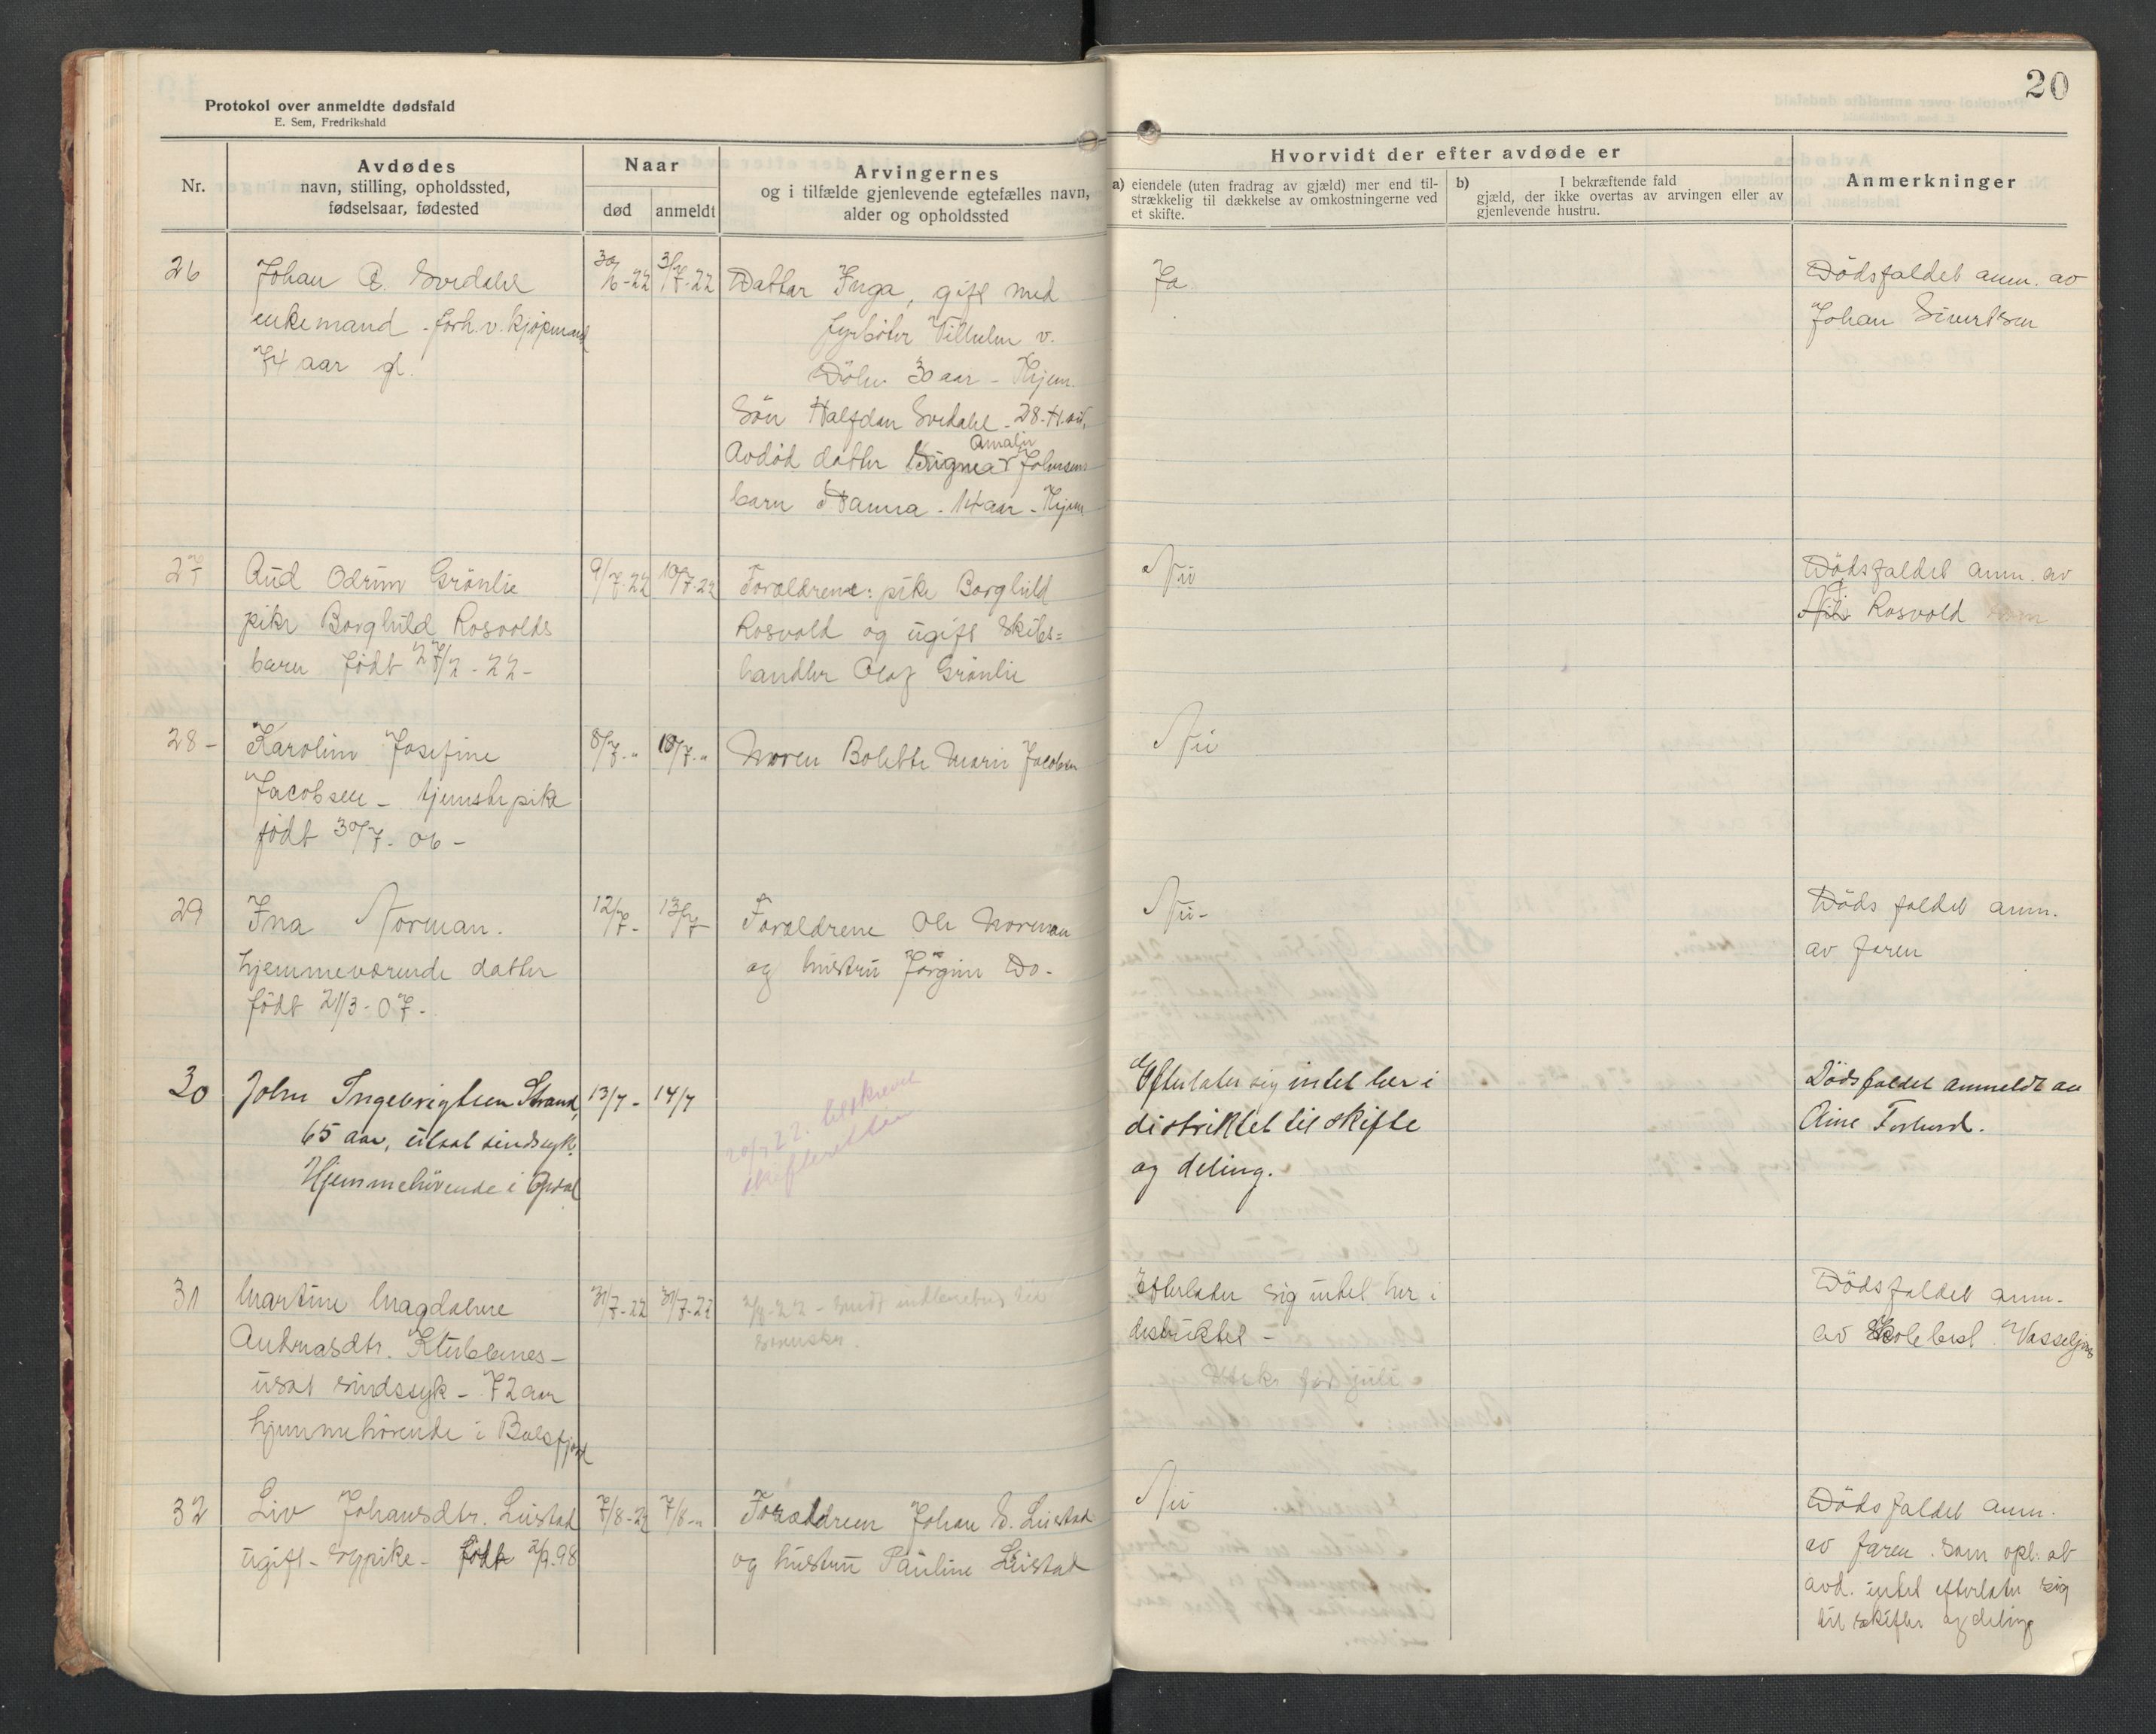 20
Protokol over anmeldte dødsfald
E. Sem, Fredrikshald
Nr.
Avdødes
navn, stilling, opholdssted,
fødselsaar, fødested
Naar
død
anmeldt
Arvingernes
og i tilfælde gjenlevende egtefælles navn,
alder og opholdssted
Hvorvidt der efter avdøde er
a) eiendele (uten fradrag av gjæld) mer end til-
strækkelig til dækkelse av omkostningerne ved
et skifte.
b) I bekræftende fald
gjæld, der ikke overtas av arvingen eller av
gjenlevende hustru.
Anmerkninger
26
Johan E. Svedahl
enkemand - forh.v. kjøpmand
74 aar gl.
30/6-22
3/7-22
Datter Inga, gift med
fyrbøter Vilhelm v.
30 aar - Hjem.
Søn Halfdan Svedahl - 28
Avdød datter Signe Amalie Johnsens
barn Hanna - 14 aar - Hjem
Ja
Dødsfaldet anm. av
Johan Sivertsen
27
Aud Odrun Grönlie
pike Borghild Rosvolds
barn født 27/2-22-
9/7-22
10/7-22
Forældrene: pike Borghild
Rosvold og ugift skibs=
handler Olaf Grönlie
Nei
Dødsfaldet anm. av
Rosvold
28-
Karoline Josefine
Jacobsen - tjenestepike
født 30/7-06-
8/7-"
10/7-"
Moren Bolette Marie Jacobsen
Nei
29
Ina Norman.
hjemmeværende datter
født 21/3-07.
12/7-
13/7
Forældrene Ole Norman
og hustru Jørgine Do-
Nei-
Döds faldet anm.
av faren
30
John Ingebrigtsen Strand,
65 aar, utsat sindssyk.
Hjemmehörende i Opdal
13/7-
14/7
20/7 22. beskrevet
skifteretten
Efterlater sig intet her i
distriktet til skifte
og deling.
Dödsfaldet anmeldt av
31
Martine Magdalene
Andreasdtr. Klubbenes-
usat sindssyk - 72 aar
hjemmehörende i Balsfjord
31/7-22
31/7-22
2/8-22 - sendt
Efterlater sig intet her i
distriktet -
Dödsfaldet anm.
av Skolebest. Vasseljen
32
Liv Johansdtr. Leistad
ugift - sypike - født 2/9.98
7/8-22
7/8-"
Forældren Johan E. Leistad
og hustru Pauline Leistad
Nei
Dödsfaldet anm.
av faren. Som opl. at
avd. intet efterlater sig
til skifte og deling